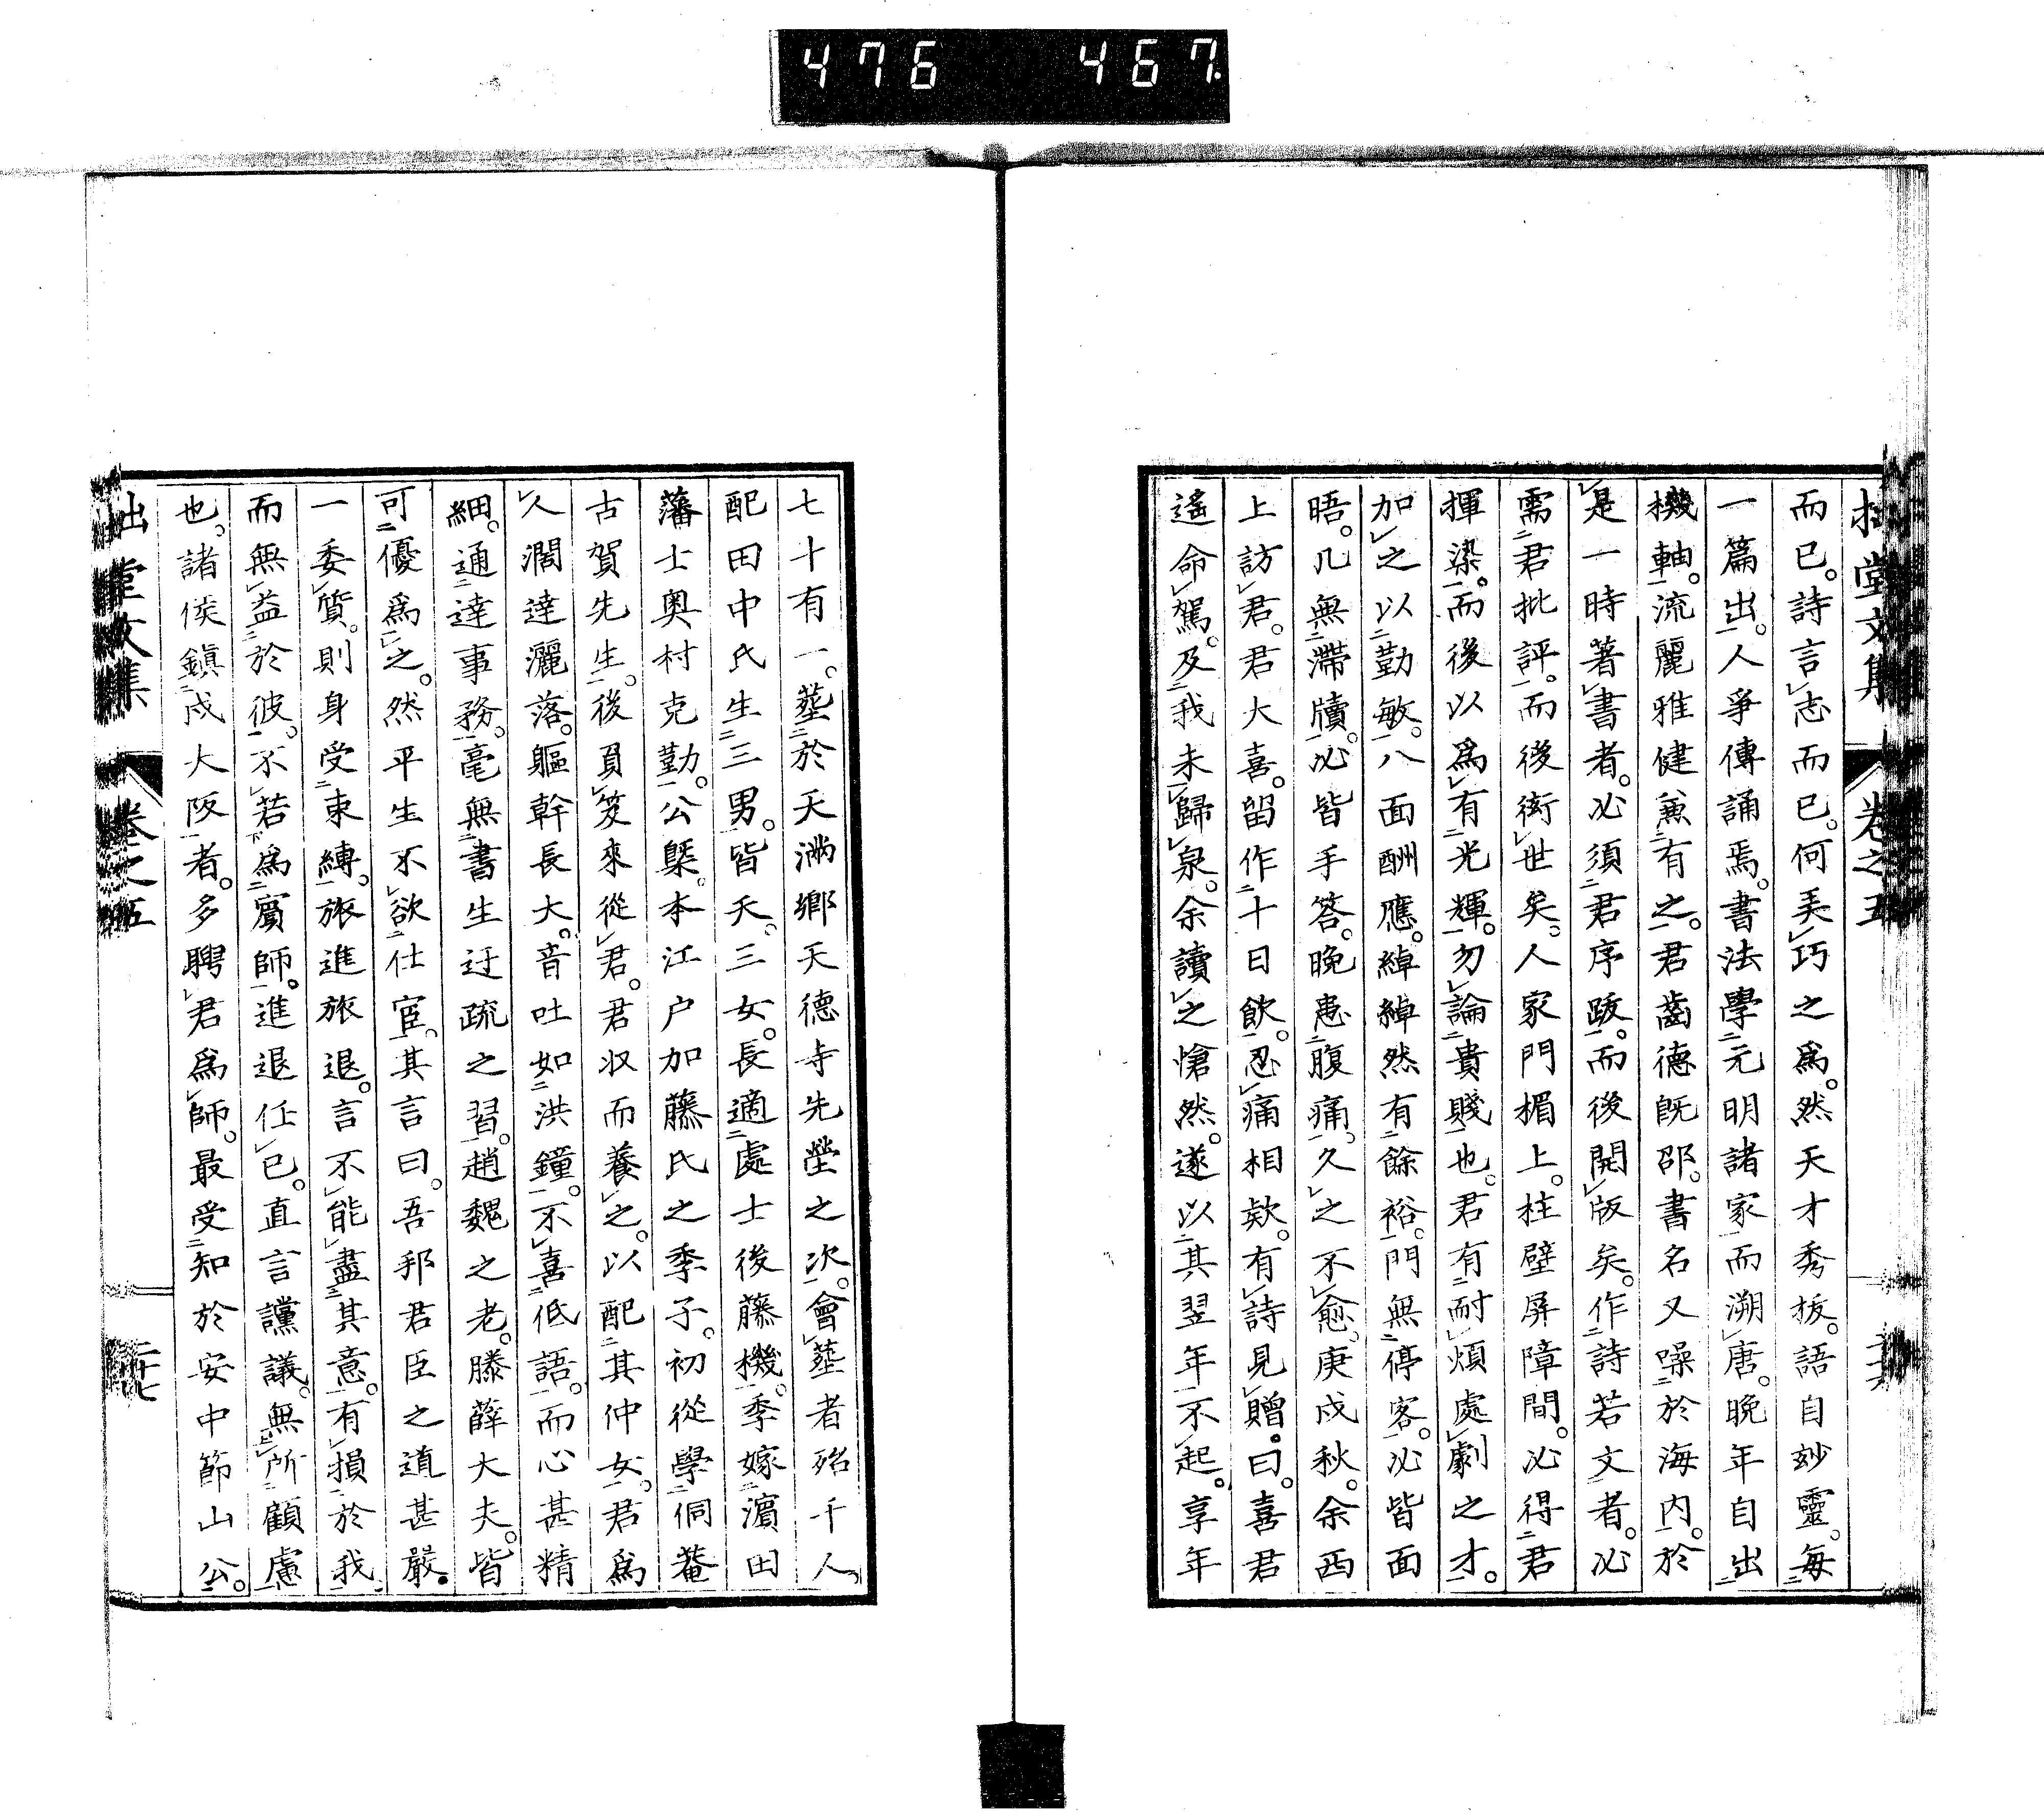 476 467
拙堂文集 卷之五
而已。詩言志而已。何美巧之爲。然天才秀拔。語自妙靈。每
一篇出。人爭傳誦焉。書法學元明諸家而溯唐。晩年自出
機軸。流麗雅健兼有之。君齒德旣邵。書名又噪於海內。於
是一時著書者。必須君序跋。而後開版矣。作詩若文者。必
需君批評。而後衒世矣。人家門楣上。柱壁屏障間。必得君
揮染。而後以爲有光輝。勿論貴賤也。君有耐煩處劇之才。
加之以勤敏。八面酬應。綽綽然有餘裕。門無停客。必皆面
晤。几無滯牘。必皆手答。晚患腹痛。久之不愈。庚戌秋。余西
上訪君。君大喜。留作十日飲。忍痛相欵。有詩見贈。曰。喜君
遙命駕。及我未歸泉。余讀之愴然。遂以其翌年不起。享年
七十有一。葬於天滿鄉天德寺先塋之次。會葬者殆千人。
配田中氏生三男。皆夭。三女。長適處士後藤機。季嫁濵田
藩士奧村克勤。公槩。本江戶加藤氏之季子。初從學侗菴
古賀先生。後負笈來從君。君収而養之。以配其仲女。君爲
人濶達灑落。軀幹長大。音吐如洪鐘。不喜低語。而心甚精
細。通達事務。毫無書生迂疏之習。趙魏之老。滕薛大夫。皆
可優爲之。然平生不欲仕宦。其言曰。吾邦君臣之道甚嚴。
一委質。則身受束縛。旅進旅退。言不能盡其意。有損於我
而無益於彼。不若爲賓師。進退任已。直言讜議。無所顧慮
也。諸侯鎭戍大阪者。多聘君爲師。最受知於安中節山公。
拙堂文集 卷之五 二十七